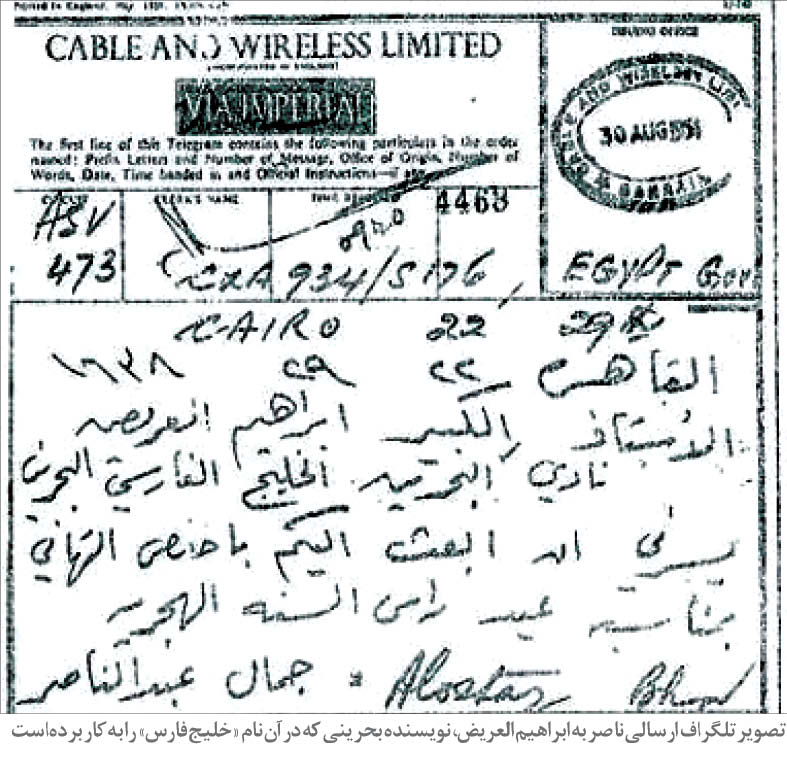 Printed in England. May 1951.
CABLE AND WIRELESS LIMITED
(INCORPORATED IN ENGLAND)
VIA IMPERIAL
The first line of this Telegram contains the following particulars in the order
named: Prefix Letters and Number of Message, Office of Origin, Number of
Words, Date, Time handed in and Official Instructions—if any.
ISSUING OFFICE
CABLE AND WIRELESS LIMI
30 AUG 1954
BAHRAIN
CLERK'S NAME
TIME RECEIVED
4463
ASV
473
0920
CXA 934/S176
EGYPT Govt
CAIRO 22 29
القاهرة ٢٢ ٢٩ ١٦٣٨
الأستاذ الكبير ابراهيم العريض
نادي البحرين الخليج الفارسي البحرين
يسرني ان ابعث اليكم باخلص التهاني
بمناسبة عيد راس السنه الهجريه
جمال عبدالناصر
تصویر تلگراف ارسالی ناصر به ابراهیم العریض، نویسنده بحرینی که در آن نام «خلیج فارس» را به کار برده است